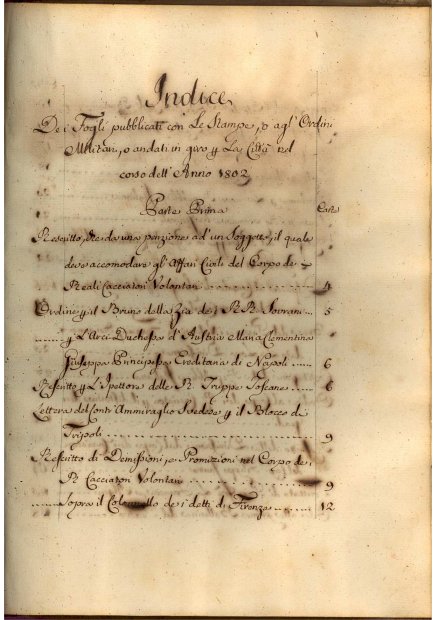 Indice
De i Fogli pubblicati con Le Stampe, o agl' Ordini
Militari, o andati in giro p La Città nel
corso dell' Anno 1802
Parte Prima
Carte
Rescritto, che da una penzione ad' un Soggetto, il quale
deve accomodare gl' Affari Civili del Corpo de
Reali Cacciatori Volontari 4
Ordine p il Bruno della Zia de i RR. Sovrani 5
p L'Arci Duchessa d'Austria Maria Clementina
Giuseppa Principessa Ereditaria di Napoli 6
Rescritto p L'Ispettore delle R. Truppe Toscane 6
Lettera del Contr'Ammiraglio Svedese p il Blocco di
Tripoli 9
Rescritto di Demissioni, e Promozioni nel Corpo de i
R. Cacciatori Volontari 9
Sopra il Colonnello de i detti di Firenze 12